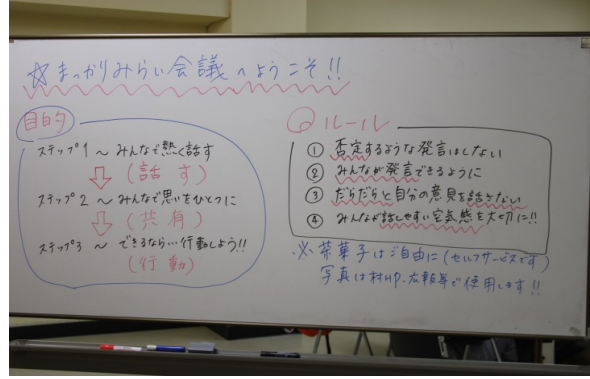 ☆まっかりみらい会議へようこそ!!
目的
ステップ1 〜 みんなで熱く話す
(話す)
ステップ2 〜 みんなで思いをひとつに
(共有)
ステップ3 〜 できるなら…行動しよう!!
(行動)
◎ルール
① 否定するような発言はしない
② みんなが発言できるように
③ だらだらと自分の意見を話さない
④ みんなが話しやすい空気感を大切に!!
※ 茶菓子はご自由に(セルフサービスです)
写真は村HP、広報等で使用します!!